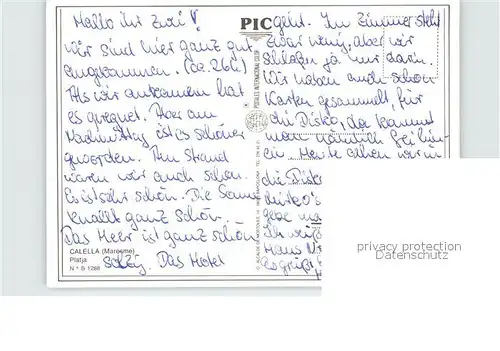 Hallo ihr zwei!
Wir sind hier ganz gut
angekommen. (ca. 26h)
Als wir ankamen hat
es geregnet. Aber am
Nachmittag ist es schöner
geworden. Am Strand
waren wir auch schon.
Es ist sehr schön. Die Sonne
knallt ganz schön.
Das Meer ist ganz schön
salzig. Das Hotel
CALELLA (Maresme)
Platja
N.° B 1288
PIC
POSTALES INTERNATIONAL COLOR
geht. Im Zimmer steht
zwar wenig, aber wir
schlafen ja nur darin.
Wir haben auch schon
Karten gesammelt, für
die Disko, da kommt
man nämlich frei hin-
ein. Heute gehen wir in
die Disko
gebe
Ich
privacy protection
Datenschutz